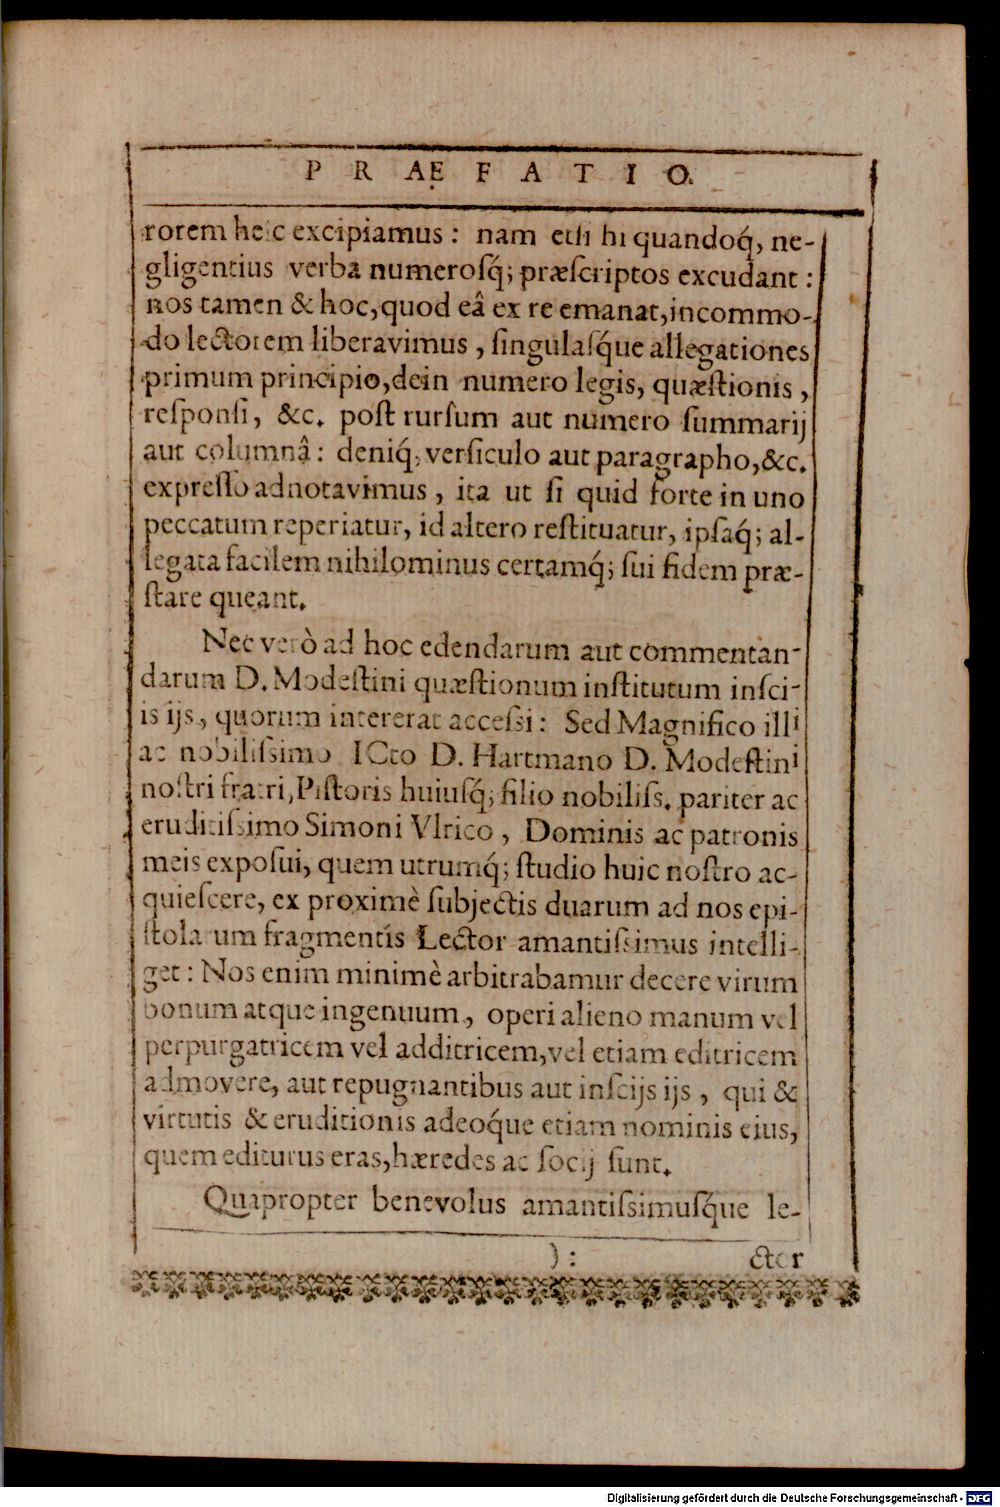 PRAEFATIO.
rorem heic excipiamus: nam etſi hi quandoq́, ne-
gligentius verba numerosq́; præſcriptos excudant:
nos tamen & hoc, quod eâ ex re emanat, incommo-
do lectorem liberavimus, ſingulaſq́ue allegationes
primum principio, dein numero legis, quæſtionis,
reſponſi, &c. poſt rurſum aut numero ſummarij
aut columnâ: deniq́; verſiculo aut paragrapho, &c.
expreſſo adnotavimus, ita ut ſi quid forte in uno
peccatum reperiatur, id altero reſtituatur, ipſaq́; al-
legata facilem nihilominus certamq́; ſui fidem præ-
ſtare queant.
Nec verò ad hoc edendarum aut commentan-
darum D. Modeſtini quæſtionum inſtitutum inſci-
is ijs, quorum intererat acceſſi: Sed Magnifico illi
ac nobiliſsimo ICto D. Hartmano D. Modeſtini
noſtri fratri, Piſtoris huiuſq́; filio nobiliſs. pariter ac
eruditiſsimo Simoni Vlrico, Dominis ac patronis
meis expoſui, quem utrumq́; ſtudio huic noſtro ac-
quieſcere, ex proximè ſubjectis duarum ad nos epi-
ſtolarum fragmentis Lector amantiſsimus intelli-
get: Nos enim minimè arbitrabamur decere virum
bonum atque ingenuum, operi alieno manum vel
perpurgatricem vel additricem, vel etiam editricem
admovere, aut repugnantibus aut inſcijs ijs, qui &
virtutis & eruditionis adeoq́ue etiam nominis eius,
quem editurus eras, hæredes ac ſocij ſunt.
Quapropter benevolus amantiſsimuſq́ue le-
): ctor
Digitalisierung gefördert durch die Deutsche Forschungsgemeinschaft - DFG